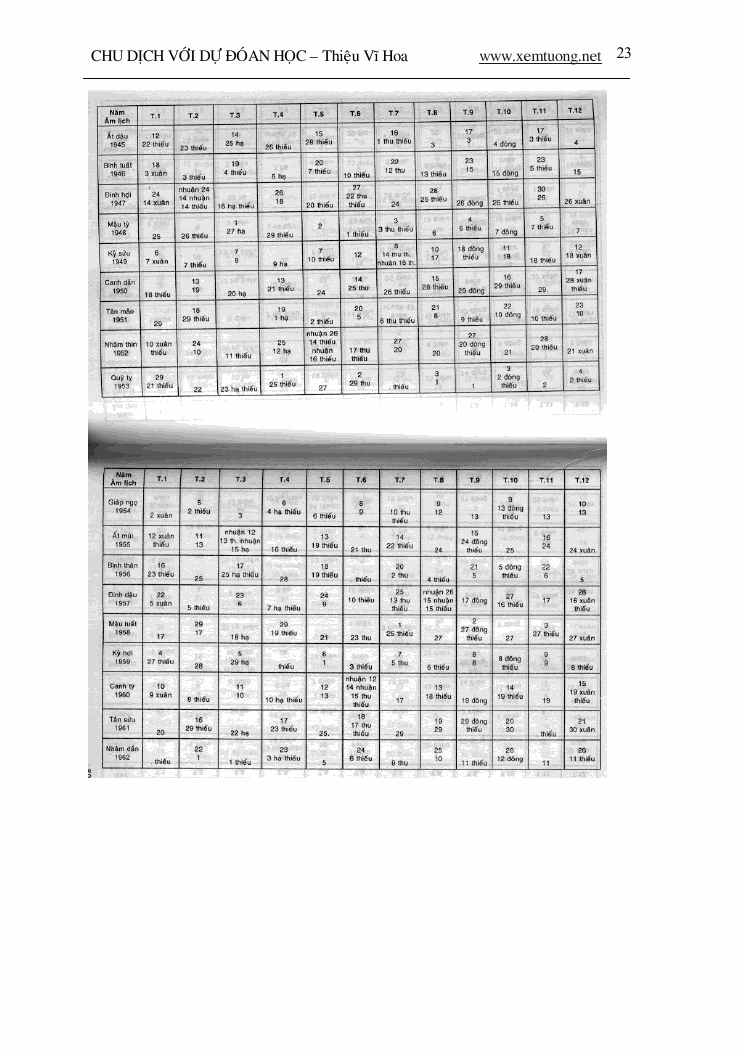 CHU DỊCH VỚI DỰ ĐÓAN HỌC – Thiệu Vĩ Hoa www.xemtuong.net 23
Năm Âm lịch T.1 T.2 T.3 T.4 T.5 T.6 T.7 T.8 T.9 T.10 T.11 T.12
12 14 15 16 17 17
Ất dậu 1945 22 thiếu 23 thiếu 25 hạ 26 thiếu 28 thiếu 1 thu thiếu 3 3 4 đông 3 thiếu 4
18 19 20 22 23 23
Bính tuất 1946 3 xuân 3 thiếu 4 thiếu 5 hạ 7 thiếu 10 thiếu 12 thu 13 thiếu 15 15 đông 5 thiếu 15
24 nhuận 24 26 27 28 30
Đinh hợi 1947 14 xuân 14 nhuận 14 thiếu 16 hạ thiếu 18 20 thiếu 22 thu thiếu 24 25 thiếu 26 đông 26 thiếu 26 26 xuân
1 2 3 4 5
Mậu tý 1948 25 26 thiếu 27 hạ 29 thiếu 1 thiếu 3 thu thiếu 6 6 thiếu 7 đông 7 thiếu 7
6 7 7 8 10 11 12
Kỷ sửu 1949 7 xuân 7 thiếu 8 9 hạ 10 thiếu 12 14 thu th. nhuận 16 th. 17 18 đông thiếu 18 18 thiếu 18 xuân
13 13 14 15 16 17
Canh dần 1950 18 thiếu 19 20 hạ 21 thiếu 24 25 thu 26 thiếu 28 thiếu 29 đông 29 thiếu 29. 28 xuân thiếu
18 19 20 21 22 23
Tân mão 1951 29 29 thiếu 1 hạ 2 thiếu 5 6 thu thiếu 8 9 thiếu 10 đông 10 thiếu 10
24 25 nhuận 26 27 27 28
Nhâm thìn 1952 10 xuân thiếu 10 11 thiếu 12 hạ 14 thiếu nhuận 16 thiếu 17 thu thiếu 20 20 20 đông thiếu 21 20 thiếu 21 xuân
29 1 2 3 3 4
Quý tỵ 1953 21 thiếu 22 23 hạ thiếu 25 thiếu 27 29 thu . thiếu 1 1 2 đông thiếu 2 2 thiếu
Năm Âm lịch T.1 T.2 T.3 T.4 T.5 T.6 T.7 T.8 T.9 T.10 T.11 T.12
5 6 8 9 9 10
Giáp ngọ 1954 2 xuân 2 thiếu 3 4 hạ thiếu 6 thiếu 9 10 thu thiếu 12 13 13 đông thiếu 13 13
11 nhuận 12 13 14 15 16
Ất mùi 1955 12 xuân thiếu 13 13 th. nhuận 15 hạ 16 thiếu 19 thiếu 21 thu 22 thiếu 24 24 đông thiếu 25 24 24 xuân
16 17 18 20 21 22
Bính thân 1956 23 thiếu 25 25 hạ thiếu 28 19 thiếu . thiếu 2 thu 4 thiếu 5 5 đông thiếu 6 5
22 23 24 25 nhuận 26 27 28
Đinh dậu 1957 5 xuân 5 thiếu 6 7 hạ thiếu 9 10 thiếu 13 thu thiếu 15 nhuận 15 thiếu 17 đông 16 thiếu 17 16 xuân thiếu
29 29 1 2 3
Mậu tuất 1958 17 17 18 hạ 19 thiếu 21 23 thu 25 thiếu 27 27 đông thiếu 27 27 thiếu 27 xuân
4 5 6 7 8 9
Kỷ hợi 1959 27 thiếu 28 29 hạ thiếu 1 3 thiếu 5 thu 6 thiếu 8 8 đông thiếu 9 8 thiếu
10 11 12 nhuận 12 13 14 15
Canh tý 1960 9 xuân 8 thiếu 10 10 hạ thiếu 13 14 nhuận 15 thu thiếu 17 18 thiếu 19 đông 19 thiếu 19 19 xuân thiếu
16 17 18 19 20 21
Tân sửu 1961 20 29 thiếu 22 hạ 23 thiếu 25. 17 thu thiếu 29 29 29 đông thiếu 30 . thiếu 30 xuân
22 23 24 25 26 26
Nhâm dần 1962 . thiếu 1 1 thiếu 3 hạ thiếu 5 6 thiếu 8 thu 10 11 thiếu 12 đông 11 11 thiếu